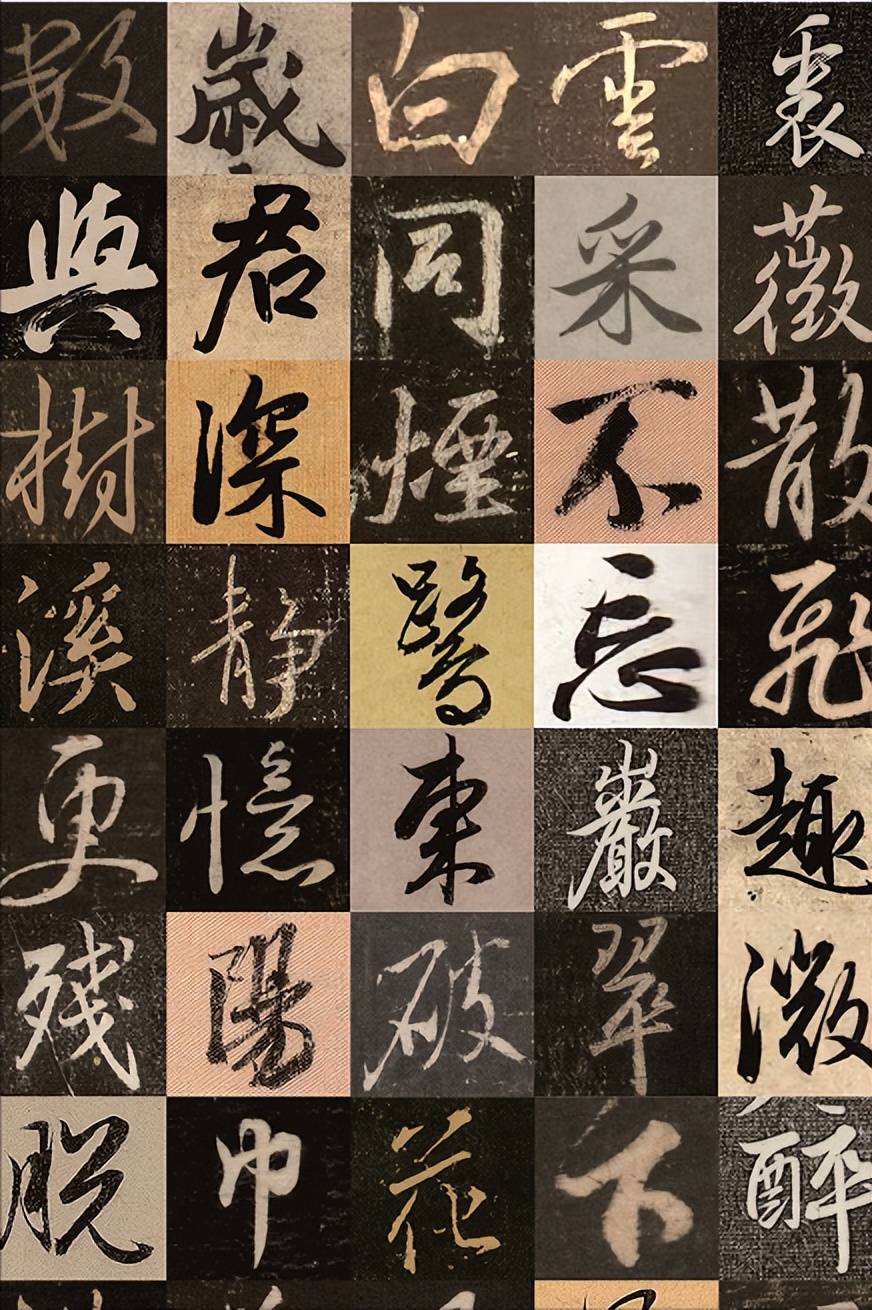 數歲白雲裏
與君同采薇
樹深煙不散
溪靜鷺忘飛
更憶東巖趣
殘陽破翠微
脫巾花下醉